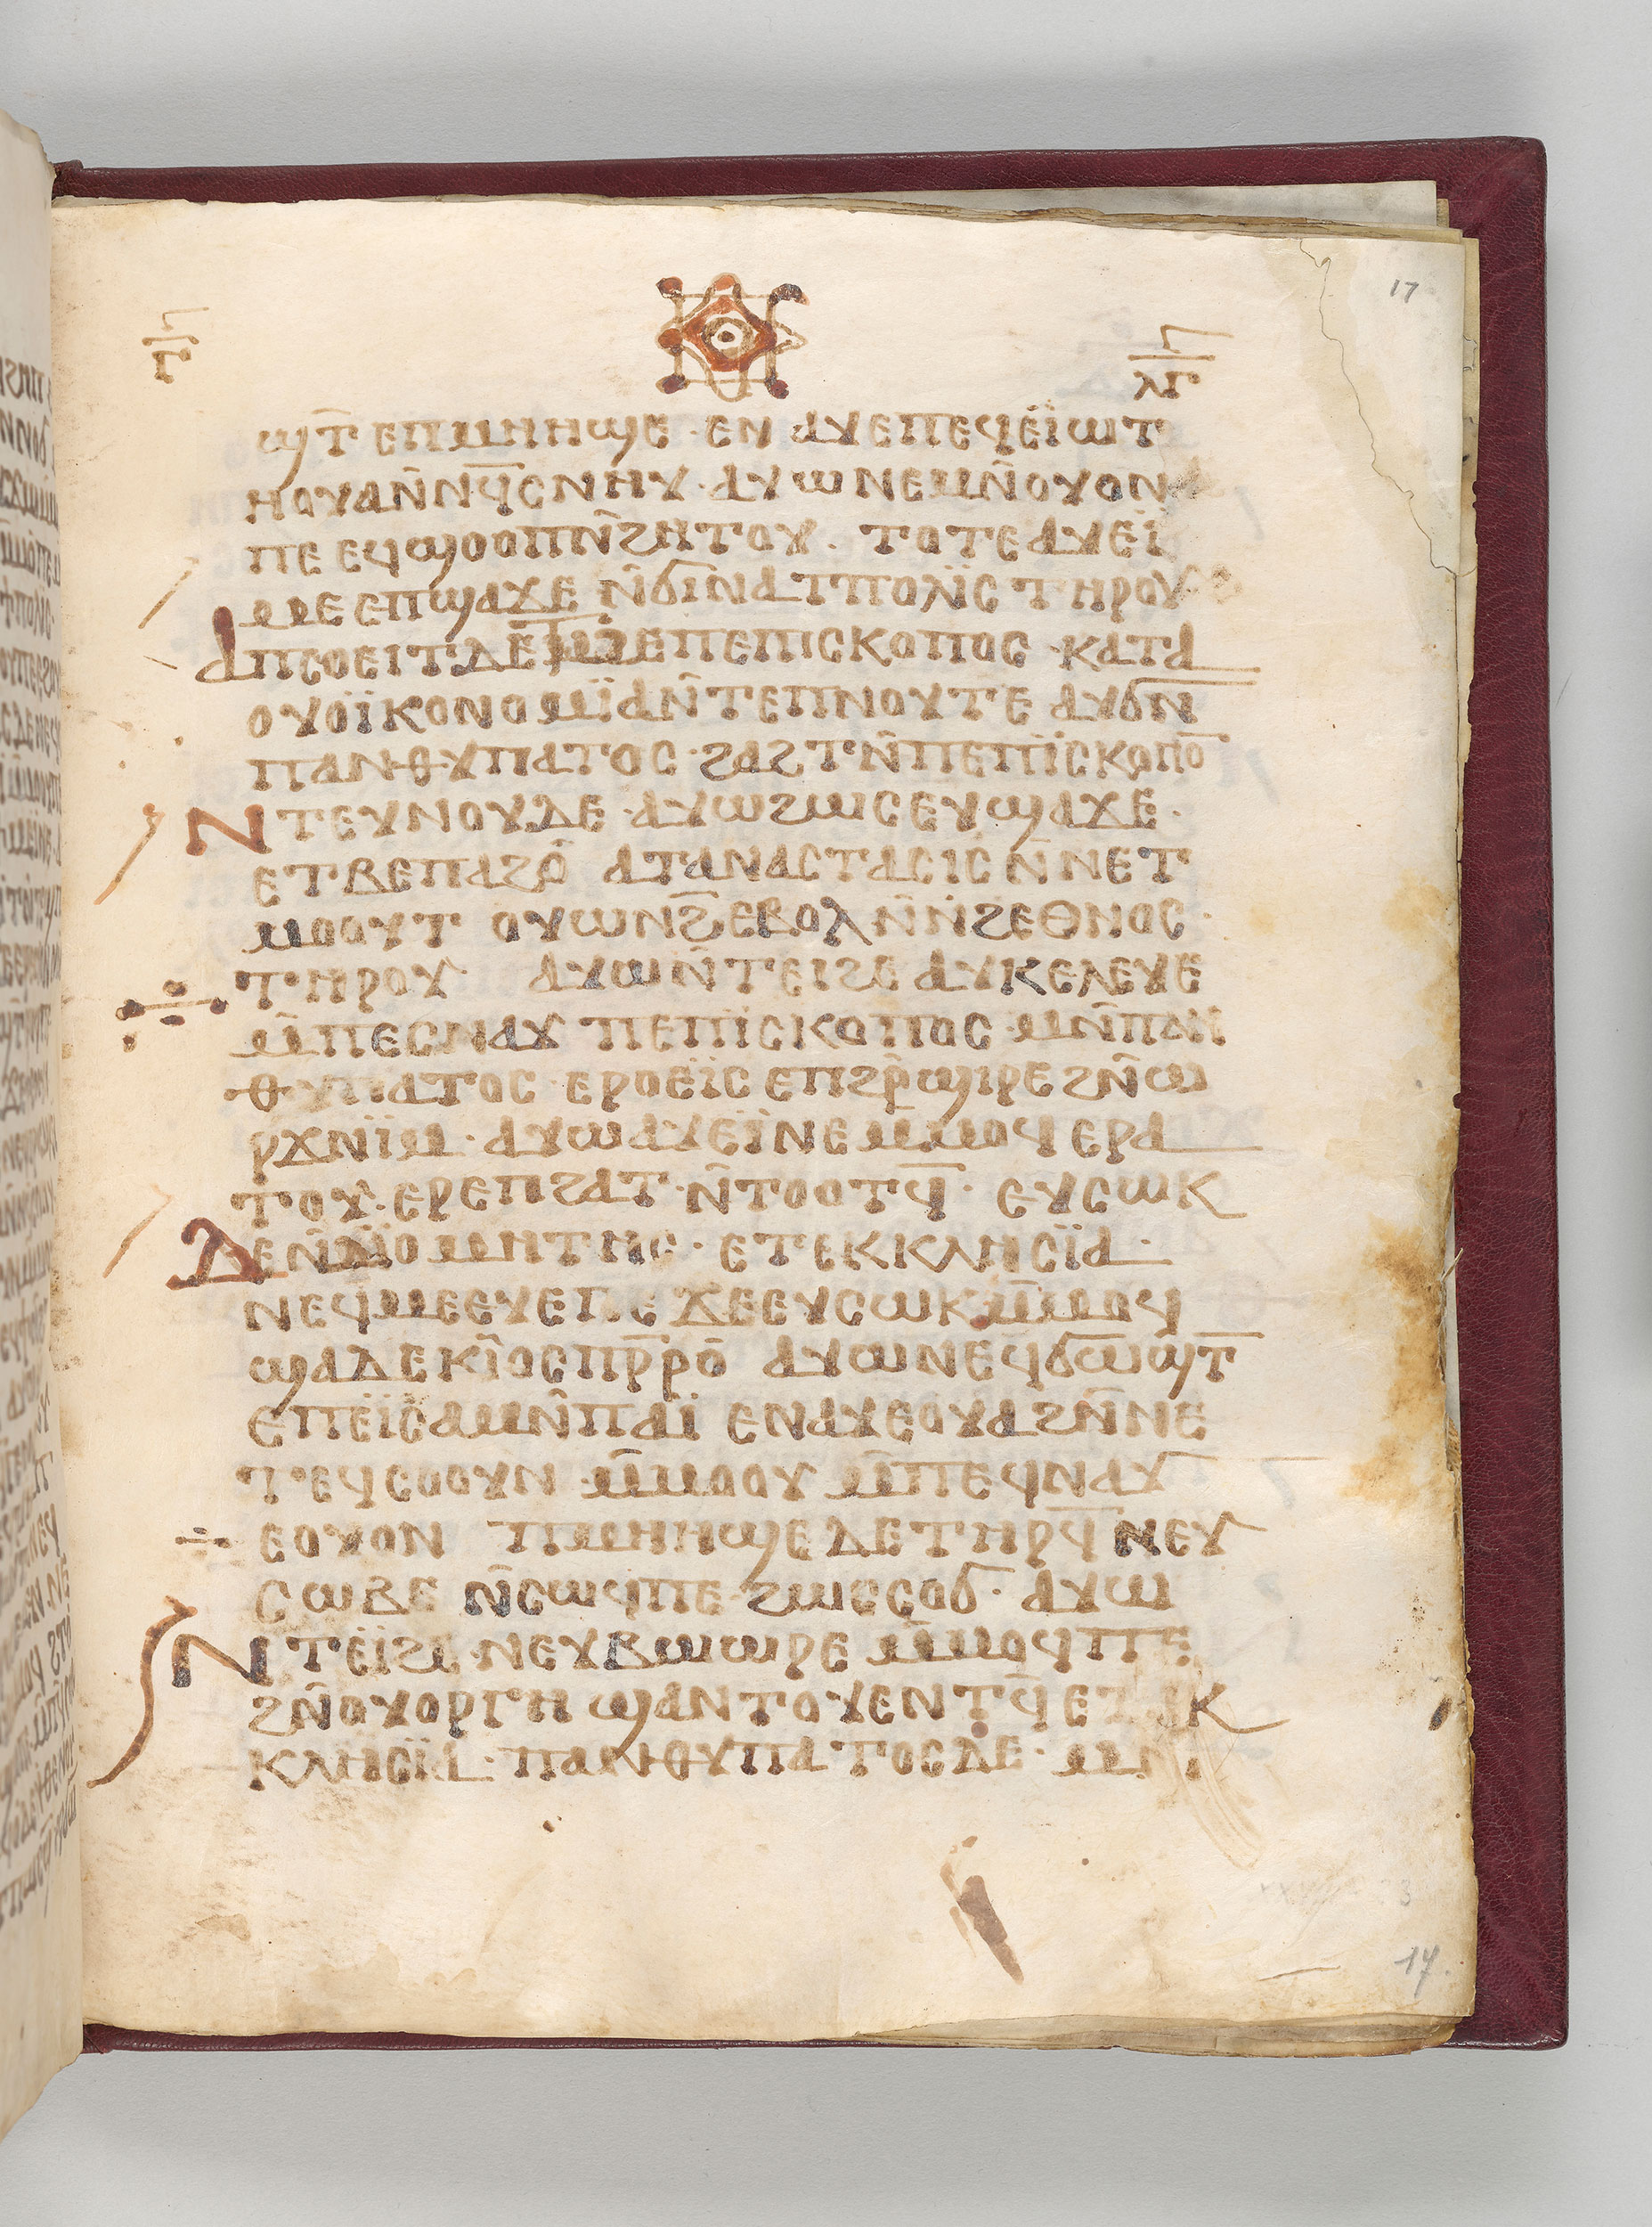 17
ⲅ̅
ⲗ̅ⲅ̅
ϣⲧ̄ ⲉⲡⲙⲏⲏϣⲉ · ⲉⲛ ⲁⲩⲉⲡⲉϥⲉⲓ̈ⲱⲧ
ⲏⲟⲩⲁⲛ̄ⲛϥ̄ⲥⲛⲏⲩ · ⲁⲩⲱⲛⲉⲙⲛ̄ⲟⲩⲟⲛ
ⲡⲉ ⲉϥϣⲟⲟⲡⲛ̄ϩⲏⲧⲟⲩ · ⲧⲟⲧⲉ ⲁⲩⲉⲓ̈
ⲙⲉ ⲉⲡϣⲁϫⲉ ⲛ̄ϭⲓⲛⲁⲧⲡⲟⲗⲓ̈ⲥ ⲧⲏⲣⲟⲩ
ⲁⲡⲥⲟⲉⲓⲧⲇⲉ ⲉⲡⲉⲡⲓⲥⲕⲟⲡⲟⲥ · ⲕⲁⲧⲁ
ⲟⲩⲟⲓ̈ⲕⲟⲛⲟⲙⲓ̈ⲁⲛ̄ⲧⲉⲡⲛⲟⲩⲧⲉ ⲁⲩϭⲛ̄
ⲡⲁⲛⲑⲩⲡⲁⲧⲟⲥ · ϩⲁϩⲧⲛ̄ⲡⲉⲡⲓ̈ⲥⲕⲟⲡⲟ̅
ⲛⲧⲉⲩⲛⲟⲩⲇⲉ · ⲁⲩⲱϩⲱⲥⲉⲩϣⲁϫⲉ ·
ⲉⲧⲃⲉⲡⲁϩⲟ̄ ⲁⲧⲁⲛⲁⲥⲧⲁⲥⲓⲥ ⲛ̄ⲛⲉⲧ
ⲙⲟⲟⲩⲧ ⲟⲩⲱⲛϩ̄ⲉⲃⲟⲗ ⲛ̄ⲛ̄ϩⲉⲑⲛⲟⲥ ·
ⲧⲏⲣⲟⲩ · ⲁⲩⲱⲛ̄ⲧⲉⲓϩⲉ ⲁⲩⲕⲉⲗⲉⲩⲉ
ⲙ̄ⲡⲉⲥⲛⲁⲩ ⲡⲉⲡⲓ̈ⲥⲕⲟⲡⲟⲥ ⲙⲛ̄ⲡⲁⲛ
ⲑⲩⲡⲁⲧⲟⲥ · ⲉⲣⲟⲉⲓ̈ⲥ ⲉⲡϩⲣ̄ϣⲓⲣⲉ ϩⲛ̄ⲱ
ⲣϫⲛⲓ̈ⲙ · ⲁⲩⲱⲁⲩⲉⲓ̈ⲛⲉⲙⲙⲟϥ ⲉⲣⲁ
ⲧⲟⲩ · ⲉⲣⲉⲡϩⲁⲧ · ⲛ̄ⲧⲟⲟⲧϥ̄ · ⲉⲩⲥⲱⲕ
ⲇⲉⲛ̄ⲇⲓⲟⲙⲏⲧⲏⲥ · ⲉⲧⲉⲕⲕⲗⲏⲥⲓ̈ⲁ ·
ⲛⲉϥⲙⲉⲉⲩⲉⲡⲉ ϫⲉⲉⲩⲥⲱⲕⲙ̄ⲙⲟϥ
ϣⲁⲇⲉⲕⲓ̄ⲟⲥⲡⲣ̄ⲣⲟ̄ ⲁⲩⲱⲛⲉϥϭⲱ̅ϣⲧ̄
ⲉⲡⲉⲓ̈ⲥⲁⲙⲛ̄ⲡⲁⲓ̈ ⲉⲛⲁⲩⲉⲟⲩⲁϩⲛ̄ⲛⲉ
ⲧⲉϥⲥⲟⲟⲩⲛ · ⲙ̄ⲙⲟⲟⲩ ⲙ̄ⲡⲉϥⲛⲁⲩ
ⲉⲟⲩⲟⲛ ⲡⲙⲏⲏϣⲉ ⲇⲉ ⲧⲏⲣϥ̄ ⲛⲉⲩ
ⲥⲱⲃⲉ ⲛ̄ⲥⲱϥⲡⲉ · ϩⲱⲥⲥⲟϭ · ⲁⲩⲱ
ⲛⲧⲉⲓ̈ϩⲉ · ⲛⲉⲩⲃⲱⲱⲣⲉ ⲙ̄ⲙⲟϥⲡⲉ
ϩⲛ̄ⲟⲩⲟⲣⲅⲏ ϣⲁⲛⲧⲟⲩⲉⲛⲧϥ̄ ⲉⲧⲉⲕ
ⲕⲗⲏⲥⲓ̈ⲁ · ⲡⲁⲛⲑⲩⲡⲁⲧⲟⲥⲇⲉ · ⲙⲛ
17.